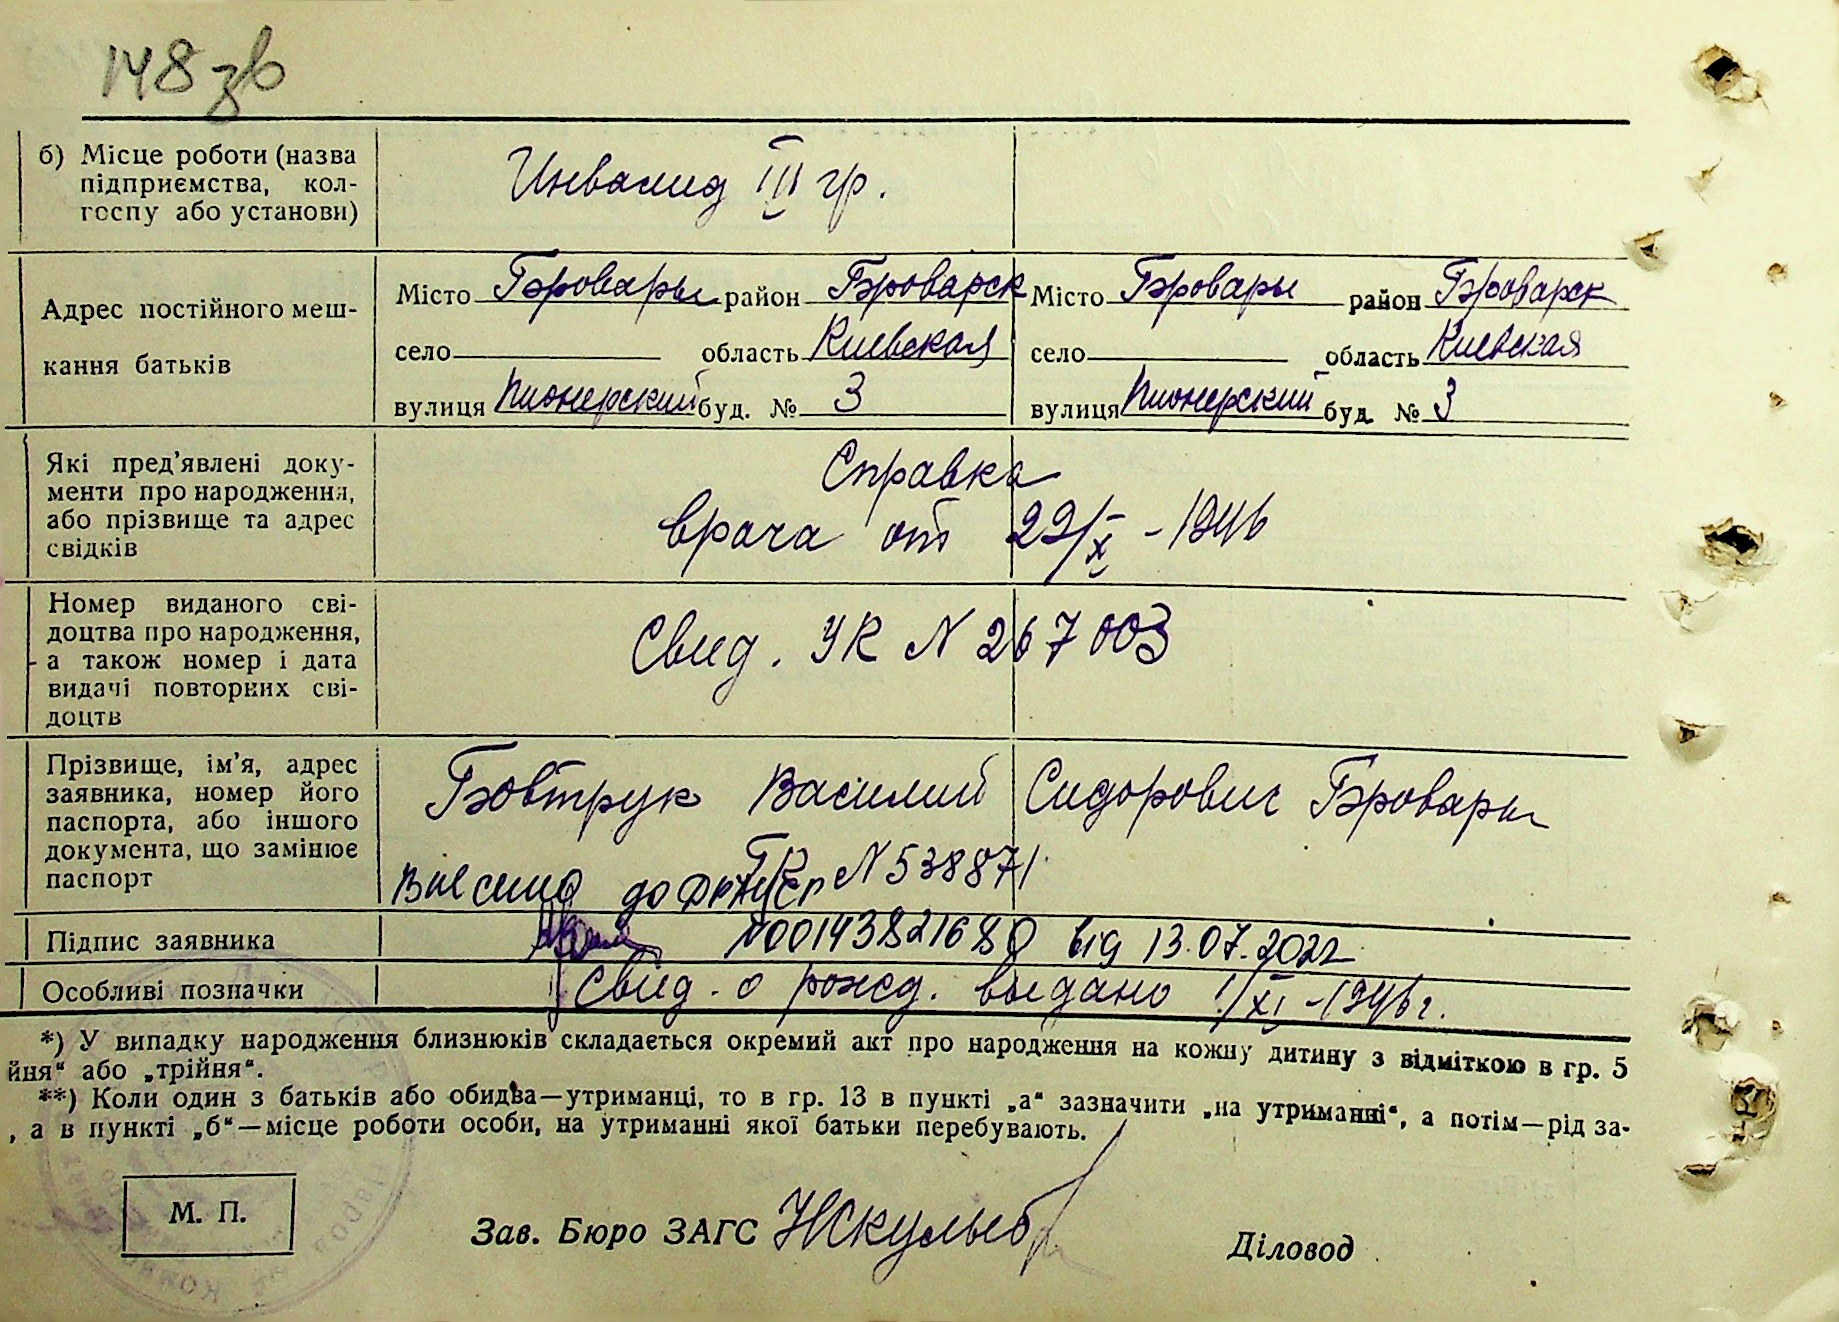 148 зв
б) Місце роботи (назва
підприємства, кол-
госпу або установи)
Инвалид III гр.
Адрес постійного меш-
кання батьків
Місто Бровары район Броварск
село область Киевская
вулиця Пионерский буд. № 3
Місто Бровары район Броварск
село область Киевская
вулиця Пионерский буд. № 3
Які пред'явлені доку-
менти про народження,
або прізвище та адрес
свідків
Справка
врача от 22/X - 1946
Номер виданого сві-
доцтва про народження,
а також номер і дата
видачі повторних сві-
доцтв
Свид. УК N 267003
Прізвище, ім'я, адрес
заявника, номер його
паспорта, або іншого
документа, що замінює
паспорт
Бовтрук Василий Сидорович Бровары
N 538871
Внесено до
Підпис заявника
N00143821680 від 13.07.2022
Особливі позначки
Свид. о рожд. выдано 1/XI - 1946 г.
*) У випадку народження близнюків складається окремий акт про народження на кожну дитину з відміткою в гр. 5
йня“ або „трійня“.
**) Коли один з батьків або обидва—утриманці, то в гр. 13 в пункті „а“ зазначити „на утриманні“, а потім—рід за-
, а в пункті „б“—місце роботи особи, на утриманні якої батьки перебувають.
М. П.
Зав. Бюро ЗАГС
Діловод